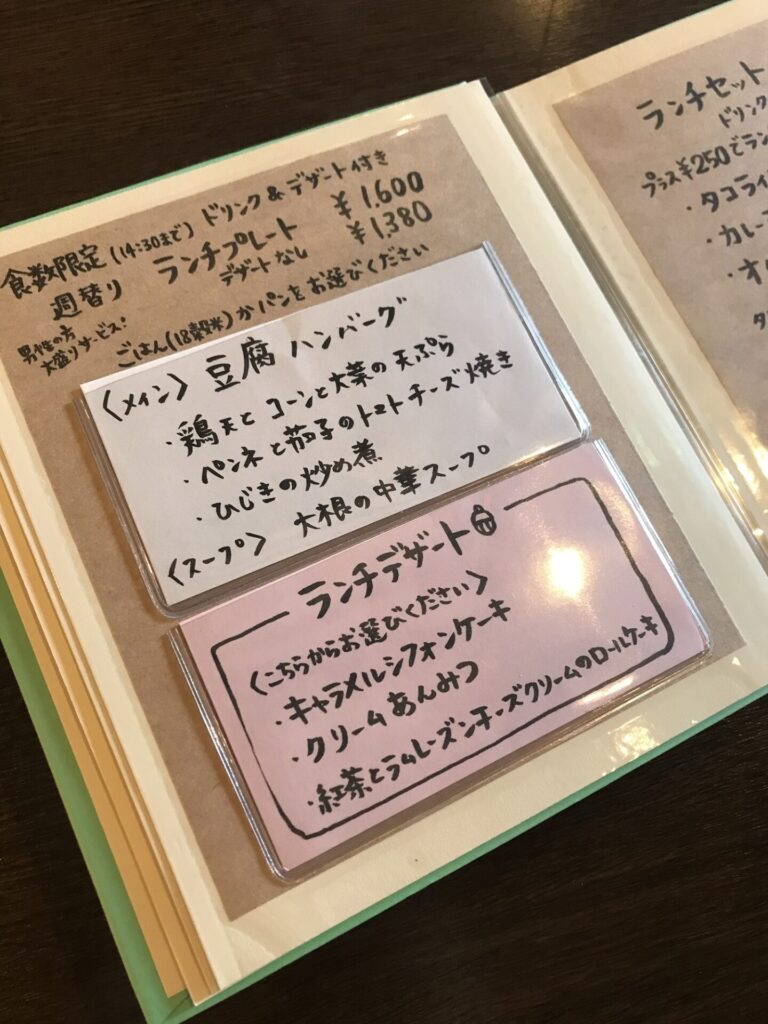 食数限定 (14:30まで) ドリンク&デザート付き
週替り ランチプレート ¥1,600
デザートなし ¥1,380
男性の方
大盛りサービス!
ごはん(18穀米)かパンをお選びください
〈メイン〉 豆腐ハンバーグ
・鶏天とコーンと大葉の天ぷら
・ペンネと茄子のトマトチーズ焼き
・ひじきの炒め煮
〈スープ〉 大根の中華スープ
ランチデザート
〈こちらからお選びください〉
・キャラメルシフォンケーキ
・クリームあんみつ
・紅茶とラムレーズンチーズクリームのロールケーキ
ランチセット
ドリンク
プラス¥250でラン
・タコライ
・カレー
・オ